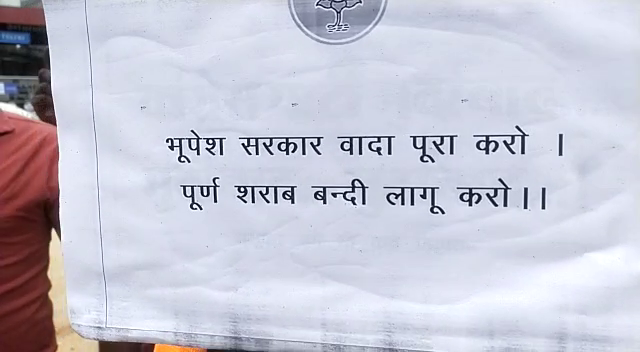 भूपेश सरकार वादा पूरा करो ।
पूर्ण शराब बन्दी लागू करो।।